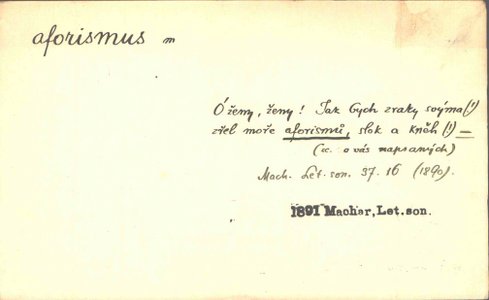 aforismus m
Ó ženy, ženy! Jak bych zraky svýma (!)
zřel moře aforismů, slok a kněh (!) —
(sc. o vás napsaných)
Mach. Let. son. 37. 16 (1890).
1891 Machar, Let. son.